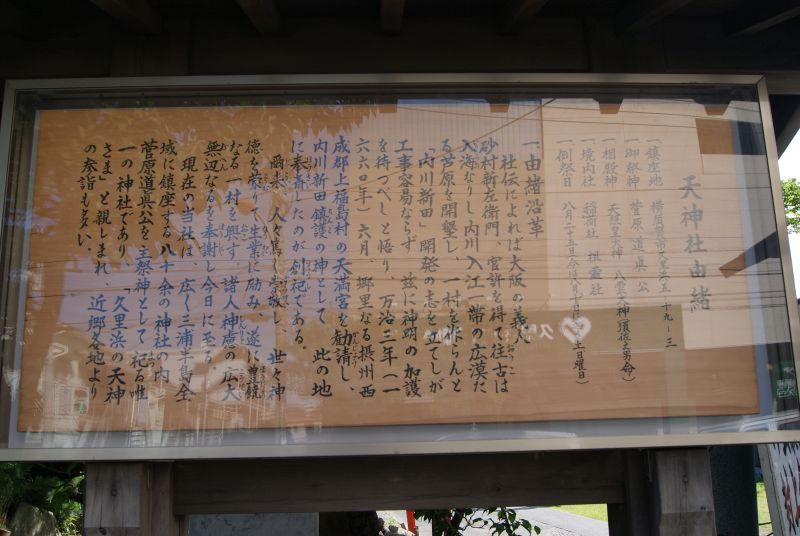 天神社由緒
一鎮座地 横須賀市久里浜五ー十九ー三
一御祭神 菅原道真公
一相殿神 天照皇大神 八雲大神(須佐之男命)
一境内社 稲荷社 祖霊社
一例祭日 八月二十五日
土曜日)
一由緒沿革
社伝によれば大阪の義人
砂村新左衛門、官許を得て往古は
入海なりし内川入江一帯の広漠た
る芦原を開墾し、一村を作らんと
「内川新田」開発の志を立てしが
工事容易ならず、茲に神明の加護
を待つべしと悟り、万治三年(一
六六〇年)六月、郷里なる摂州西
成郡上福島村の天満宮を勧請し、
内川新田鎮護の神として 此の地
に奉斎したのが創祀である。
爾来、人々篤く崇敬し 世々神
徳を蒙りて生業に励み、遂に豊饒
なる一村を興す 諸人神慮の広大
無辺なるを奉謝し今日に至る。
現在の当社は 広く三浦半島全
域に鎮座する八十余の神社の内
菅原道真公を主祭神として 祀る唯
一の神社であり、「久里浜の天神
さま」と親しまれ、近郷各地より
の参詣も多い。